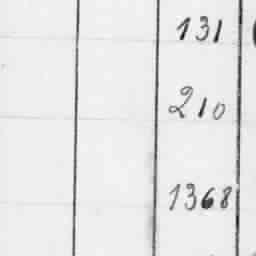 131
210
1368